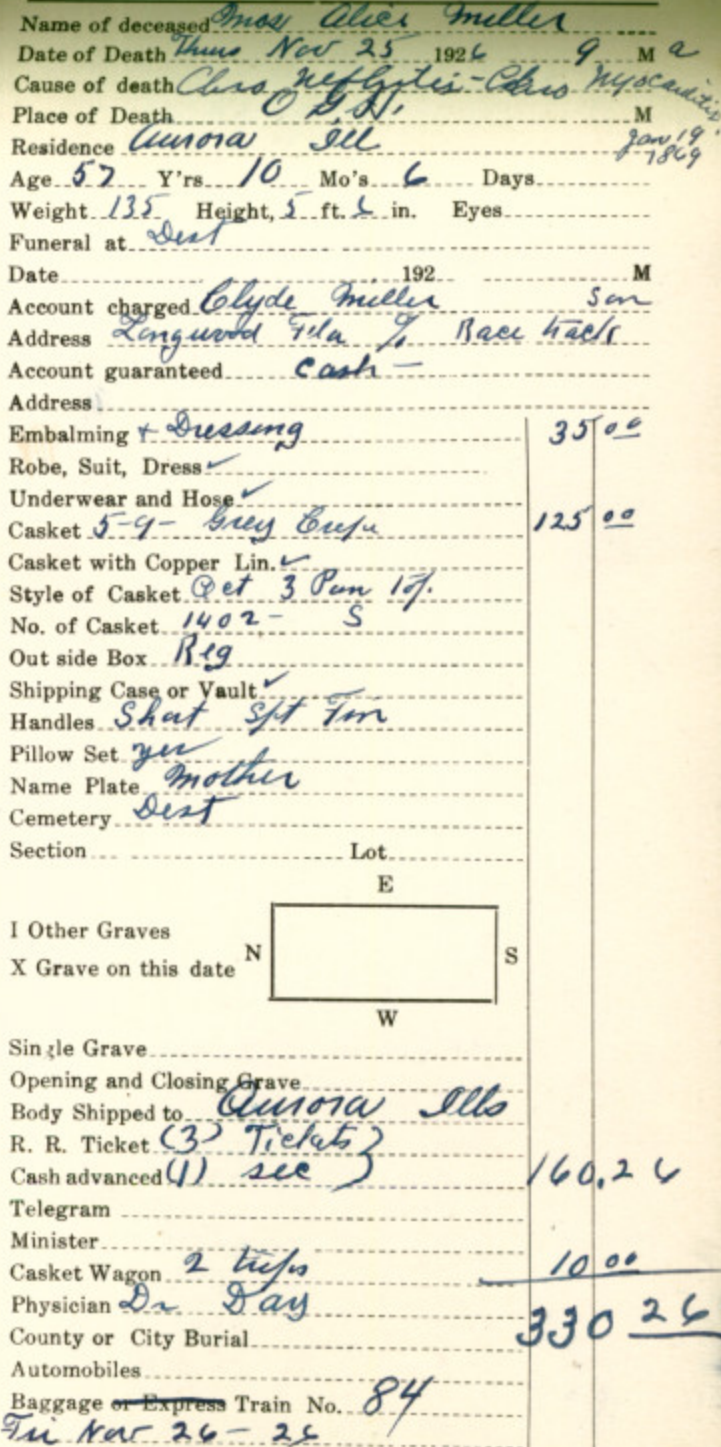 Name of deceased Mrs Alice Miller
Date of Death Thurs Nov 25 1926 9 M a
Cause of death Chro Neflytis - Chro Myocarditis
Place of Death O G H. M
Residence Aurora Ill Jan 19 1869
Age 57 Y'rs 10 Mo's 6 Days
Weight 135 Height, 5 ft. 6 in. Eyes
Funeral at Dest
Date 192 M
Account charged Clyde Miller Son
Address Longwood Fla % Race track
Account guaranteed Cash -
Address
Embalming + Dressing 35 00
Robe, Suit, Dress ✓
Underwear and Hose ✓
Casket 5-9- Grey Crepe 125 00
Casket with Copper Lin. ✓
Style of Casket Oct 3 Pan
No. of Casket 1402- S
Out side Box Reg
Shipping Case or Vault ✓
Handles Short
Pillow Set yes
Name Plate Mother
Cemetery Dest
Section Lot
E
I Other Graves
N S
X Grave on this date
W
Single Grave
Opening and Closing Grave
Body Shipped to Aurora Ills
R. R. Ticket (3) Tickets }
Cash advanced (1) sec } 160.26
Telegram
Minister
Casket Wagon 2 trips 10 00
Physician Dr Day 330 26
County or City Burial
Automobiles
Baggage or Express Train No. 84
Fri Nov 26 - 26